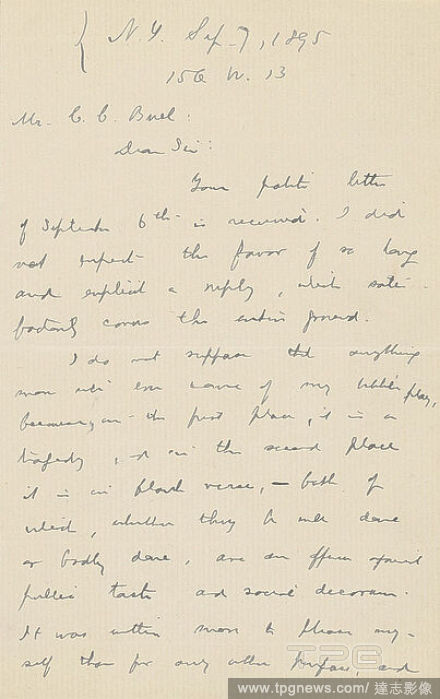 N.Y. Sep. 7, 1895
156 W. 13
Mr. C. C. Buel:
Dear Sir:
Your polite letter
of September 6th is received. I did
not expect the favor of so long
and explicit a reply, which satis-
factorily covers the entire ground.
I do not suppose that anything
more will ever come of my little play,
because, in the first place, it is a
tragedy, and in the second place
it is in blank verse, — both of
which, whether they be well done
or badly done, are an offense against
public taste and social decorum.
It was written more to please my-
self than for any other purpose, and
TPG
www.tpgnews.com/達志影像